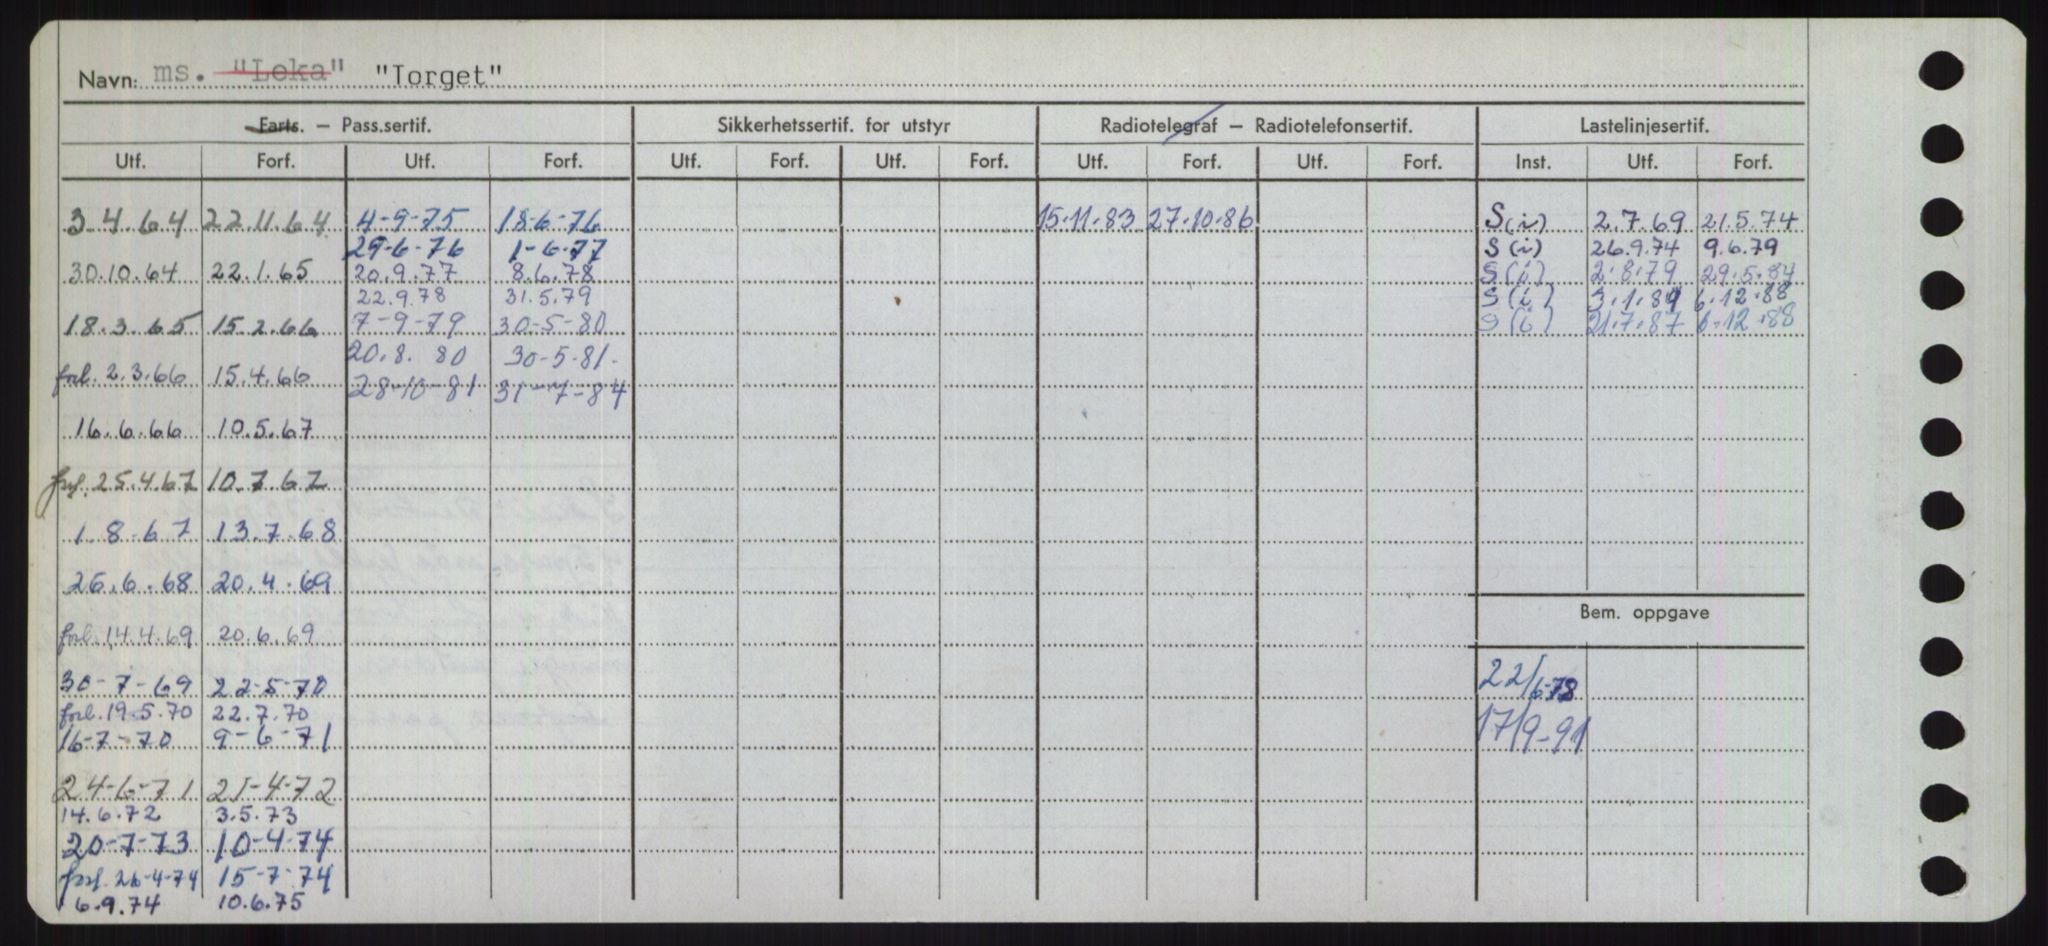 Navn: ms. "Loka" "Torget"
Farts. – Pass.sertif. Sikkerhetssertif. for utstyr Radiotelegraf – Radiotelefonsertif. Lastelinjesertif.
Utf. Forf. Utf. Forf. Utf. Forf. Utf. Forf. Utf. Forf. Utf. Forf. Inst. Utf. Forf.
3.4.64 22.11.64 4-9-75 18-6-76 15.11.83 27.10.86 S(i) 2.7.69 21.5.74
29-6-76 1-6-77 S(i) 26.9.74 9.6.79
30.10.64 22.1.65 20.9.77 8.6.78 S(i) 2.8.79 29.5.84
22.9.78 31.5.79 S(i) 3.1.84 6.12.88
18.3.65 15.2.66 7-9-79 30-5-80 S(i) 21.7.87 6.12.88
20.8.80 30-5-81.
forl. 2.3.66 15.4.66 28-10-81 31-7-84
16.6.66 10.5.67
forl. 25.4.67 10.7.67
1.8.67 13.7.68
26.6.68 20.4.69
forl. 14.4.69 20.6.69
Bem. oppgave
30-7-69 22-5-70 22/6-78
forl. 19.5.70 22.7.70
16-7-70 9-6-71 17/9-91
24-6-71 21-4-72
14.6.72 3.5.73
20-7-73 10-4-74
forl. 26-4-74 15-7-74
6.9.74 10.6.75